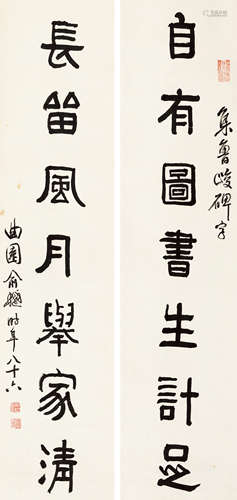 自有圖書生計足
集魯峻碑字
長留風月舉家清
曲園俞樾時年八十六